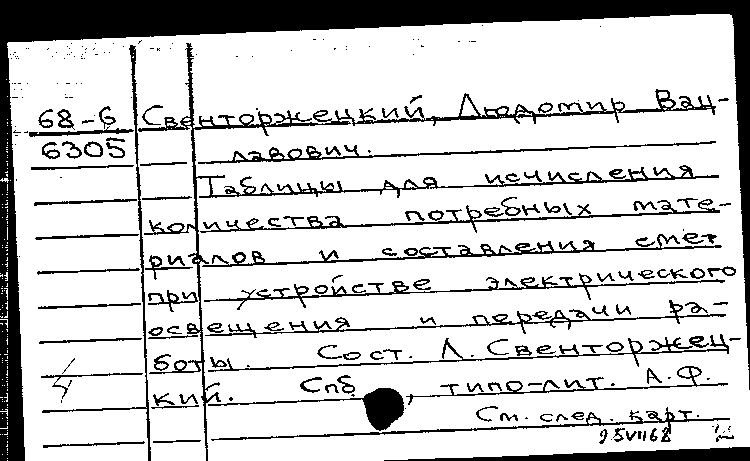 68-6 Свенторжецкий, Людомир Вац-
6305 лавович.
Таблицы для исчисления
количества потребных мате-
риалов и составления смет
при устройстве электрического
освещения и передачи ра-
боты. Сост. Л. Свенторжец-
кий. Спб , типо-лит. А.Ф.
См. след. карт.